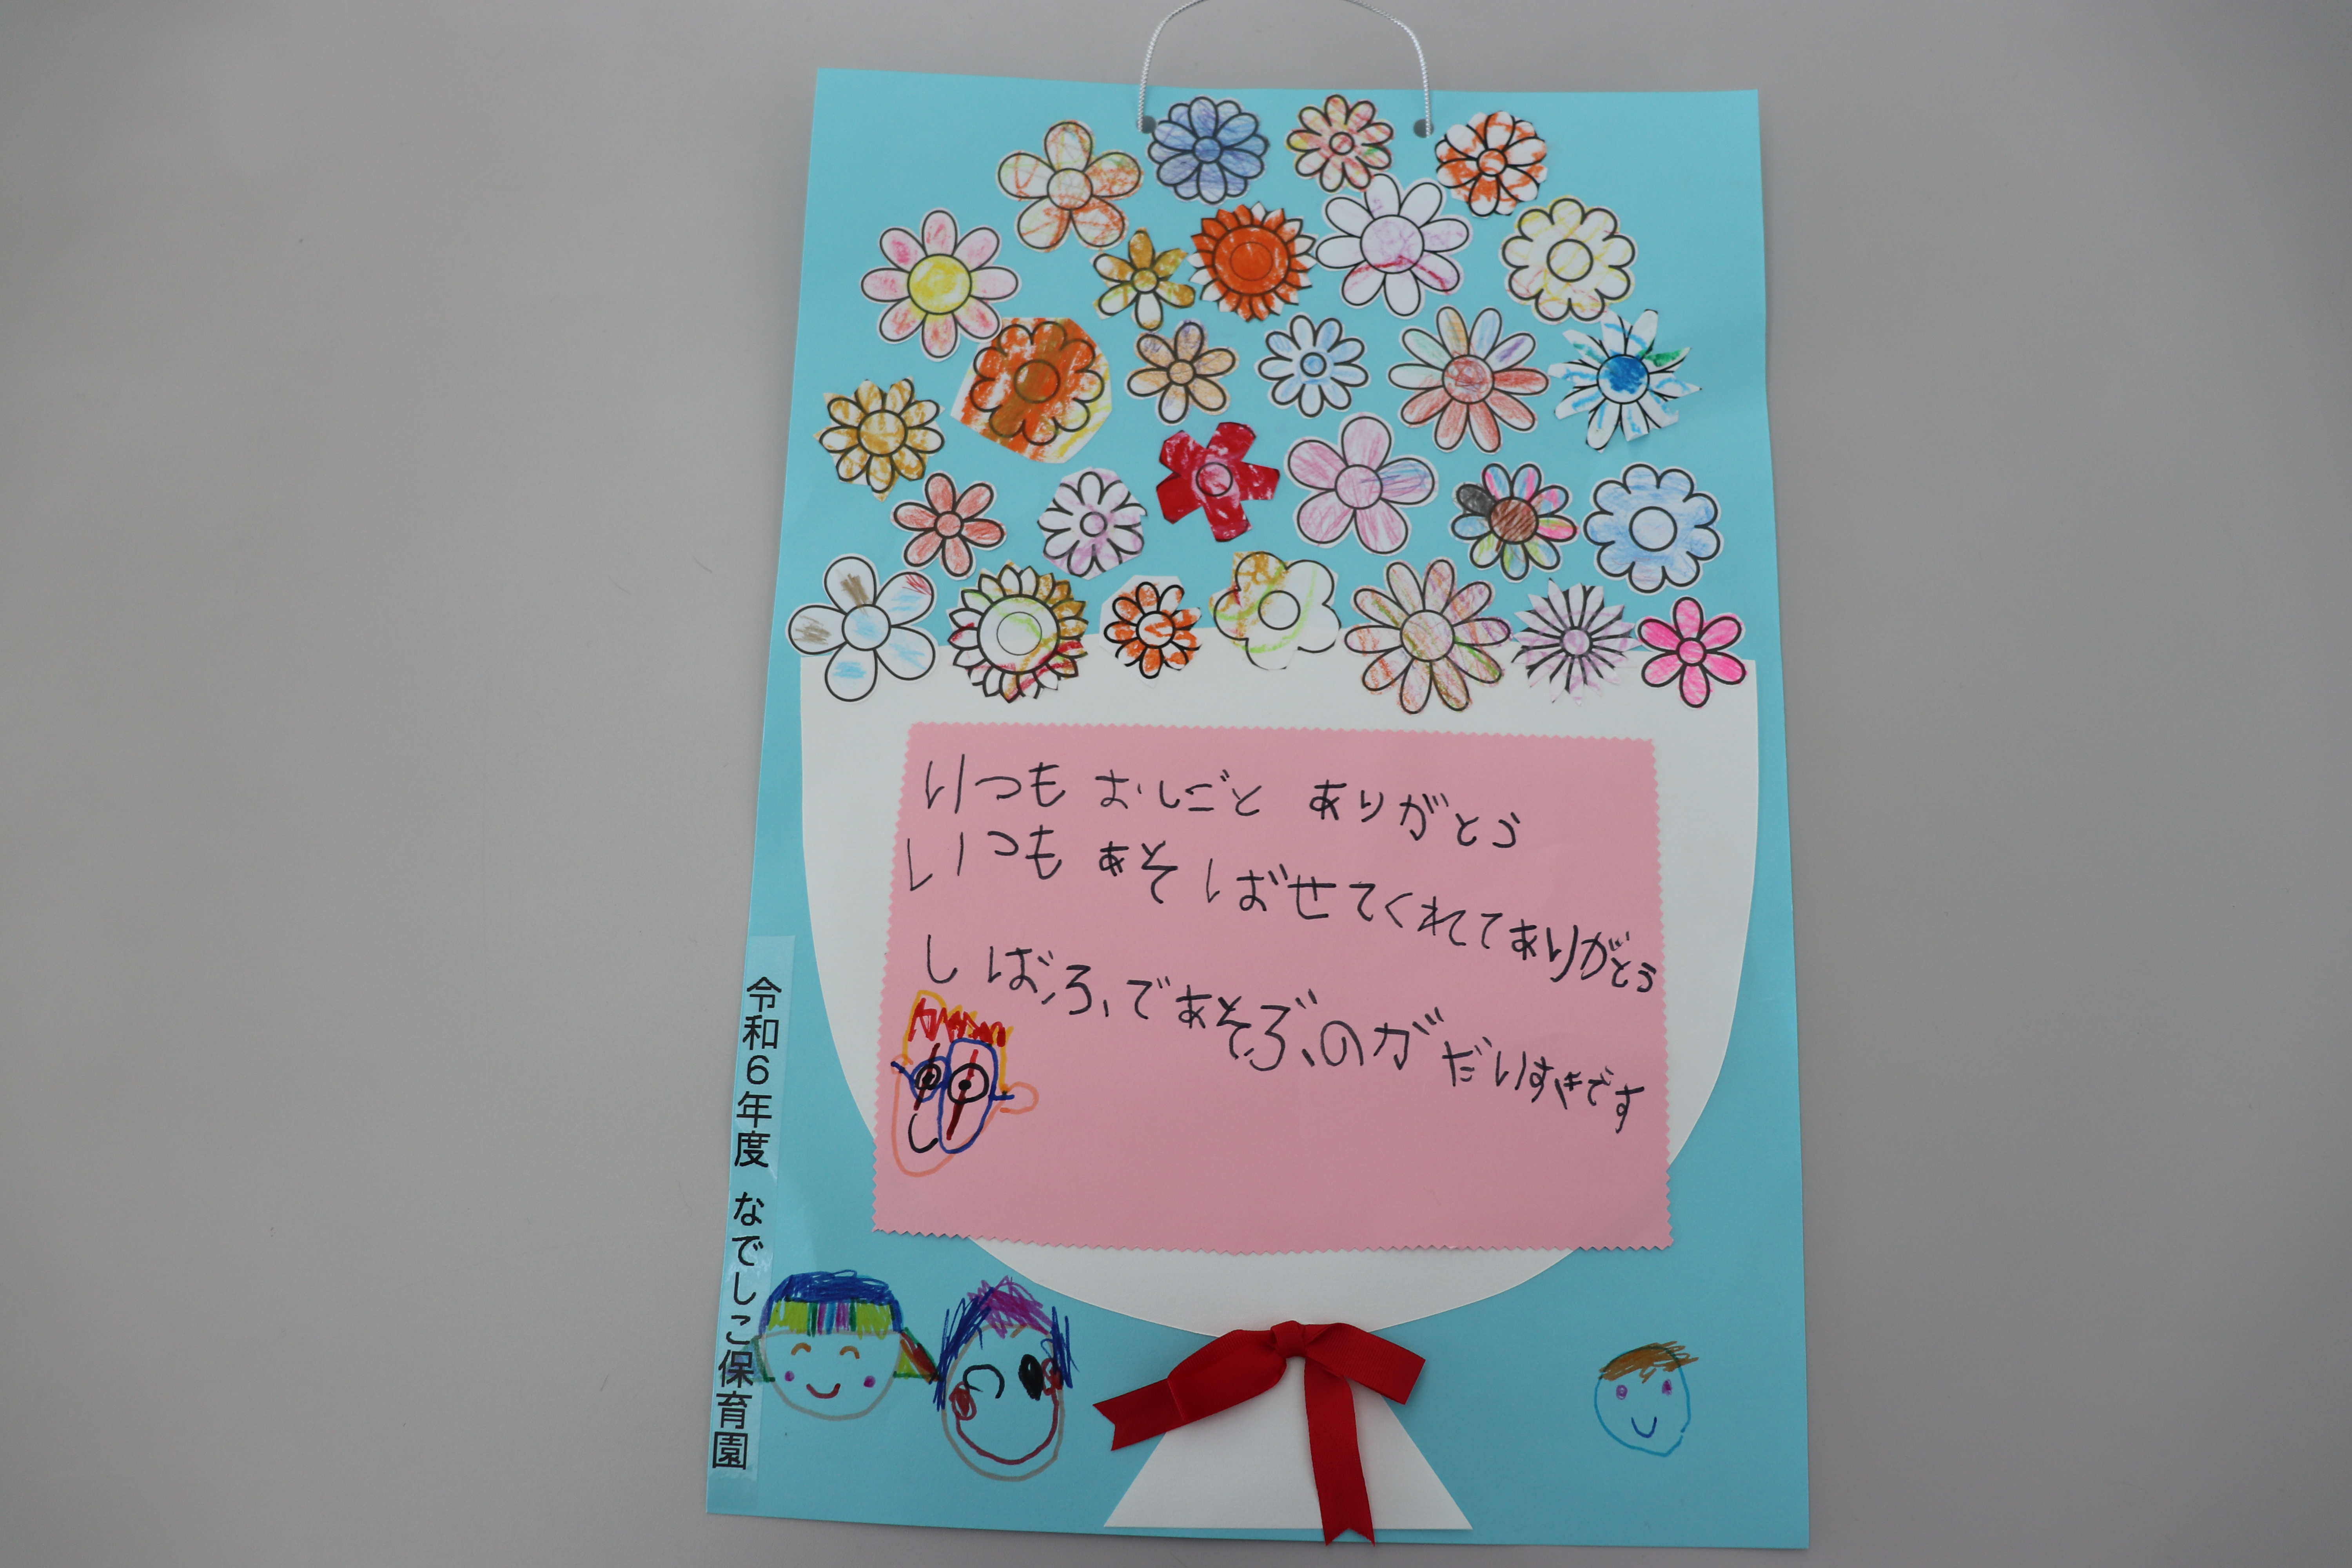 いつも おしごと ありがとう
いつも あそばせてくれてありがとう
しばふであそぶのが だいすきです
令和6年度 なでしこ保育園